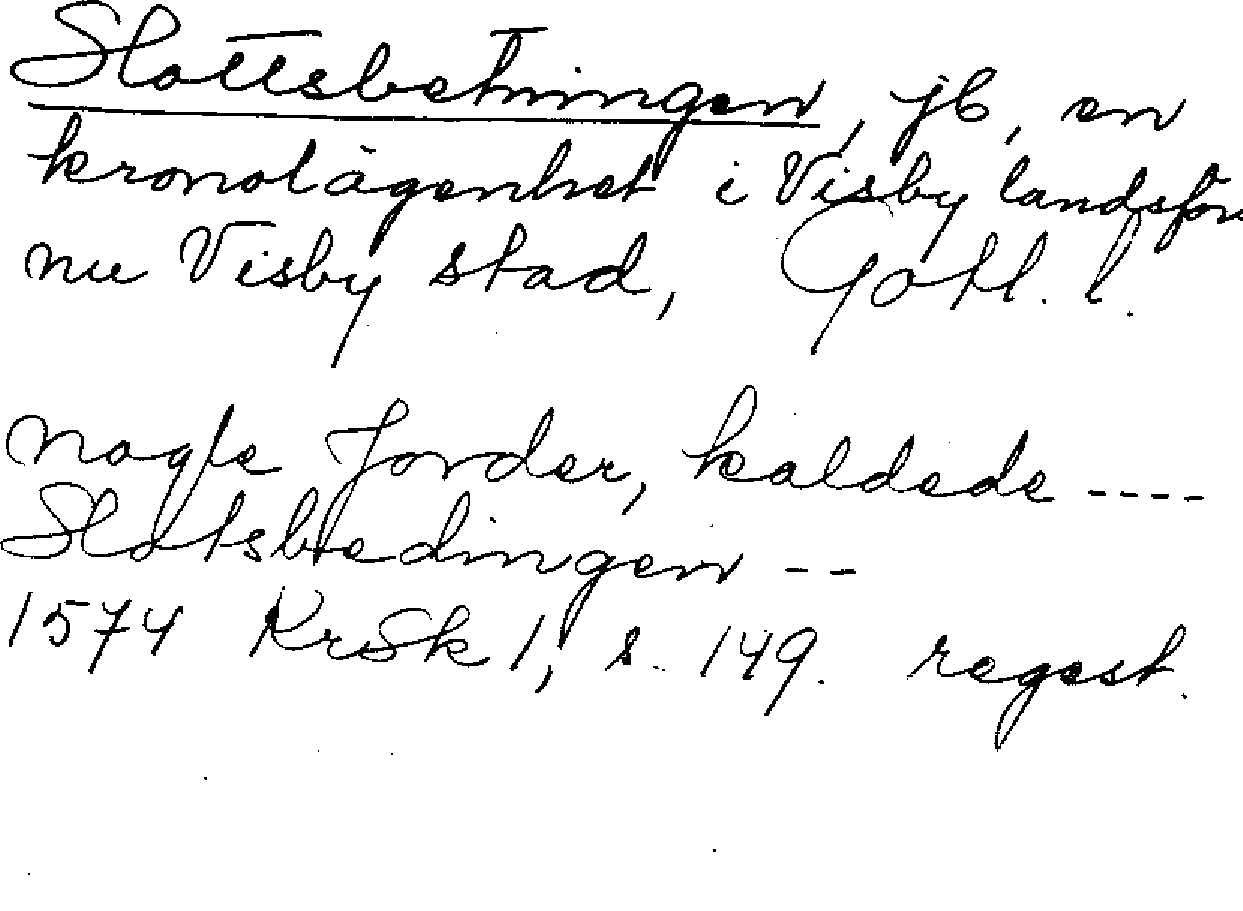 Slottsbetningen, jb, en
kronolägenhet i Visby landsförs
nu Visby stad, Gotl. l.
Nogle Jorder, kaldede ----
Slotsbedingen --
1574 KrSk 1, s. 149. regest.